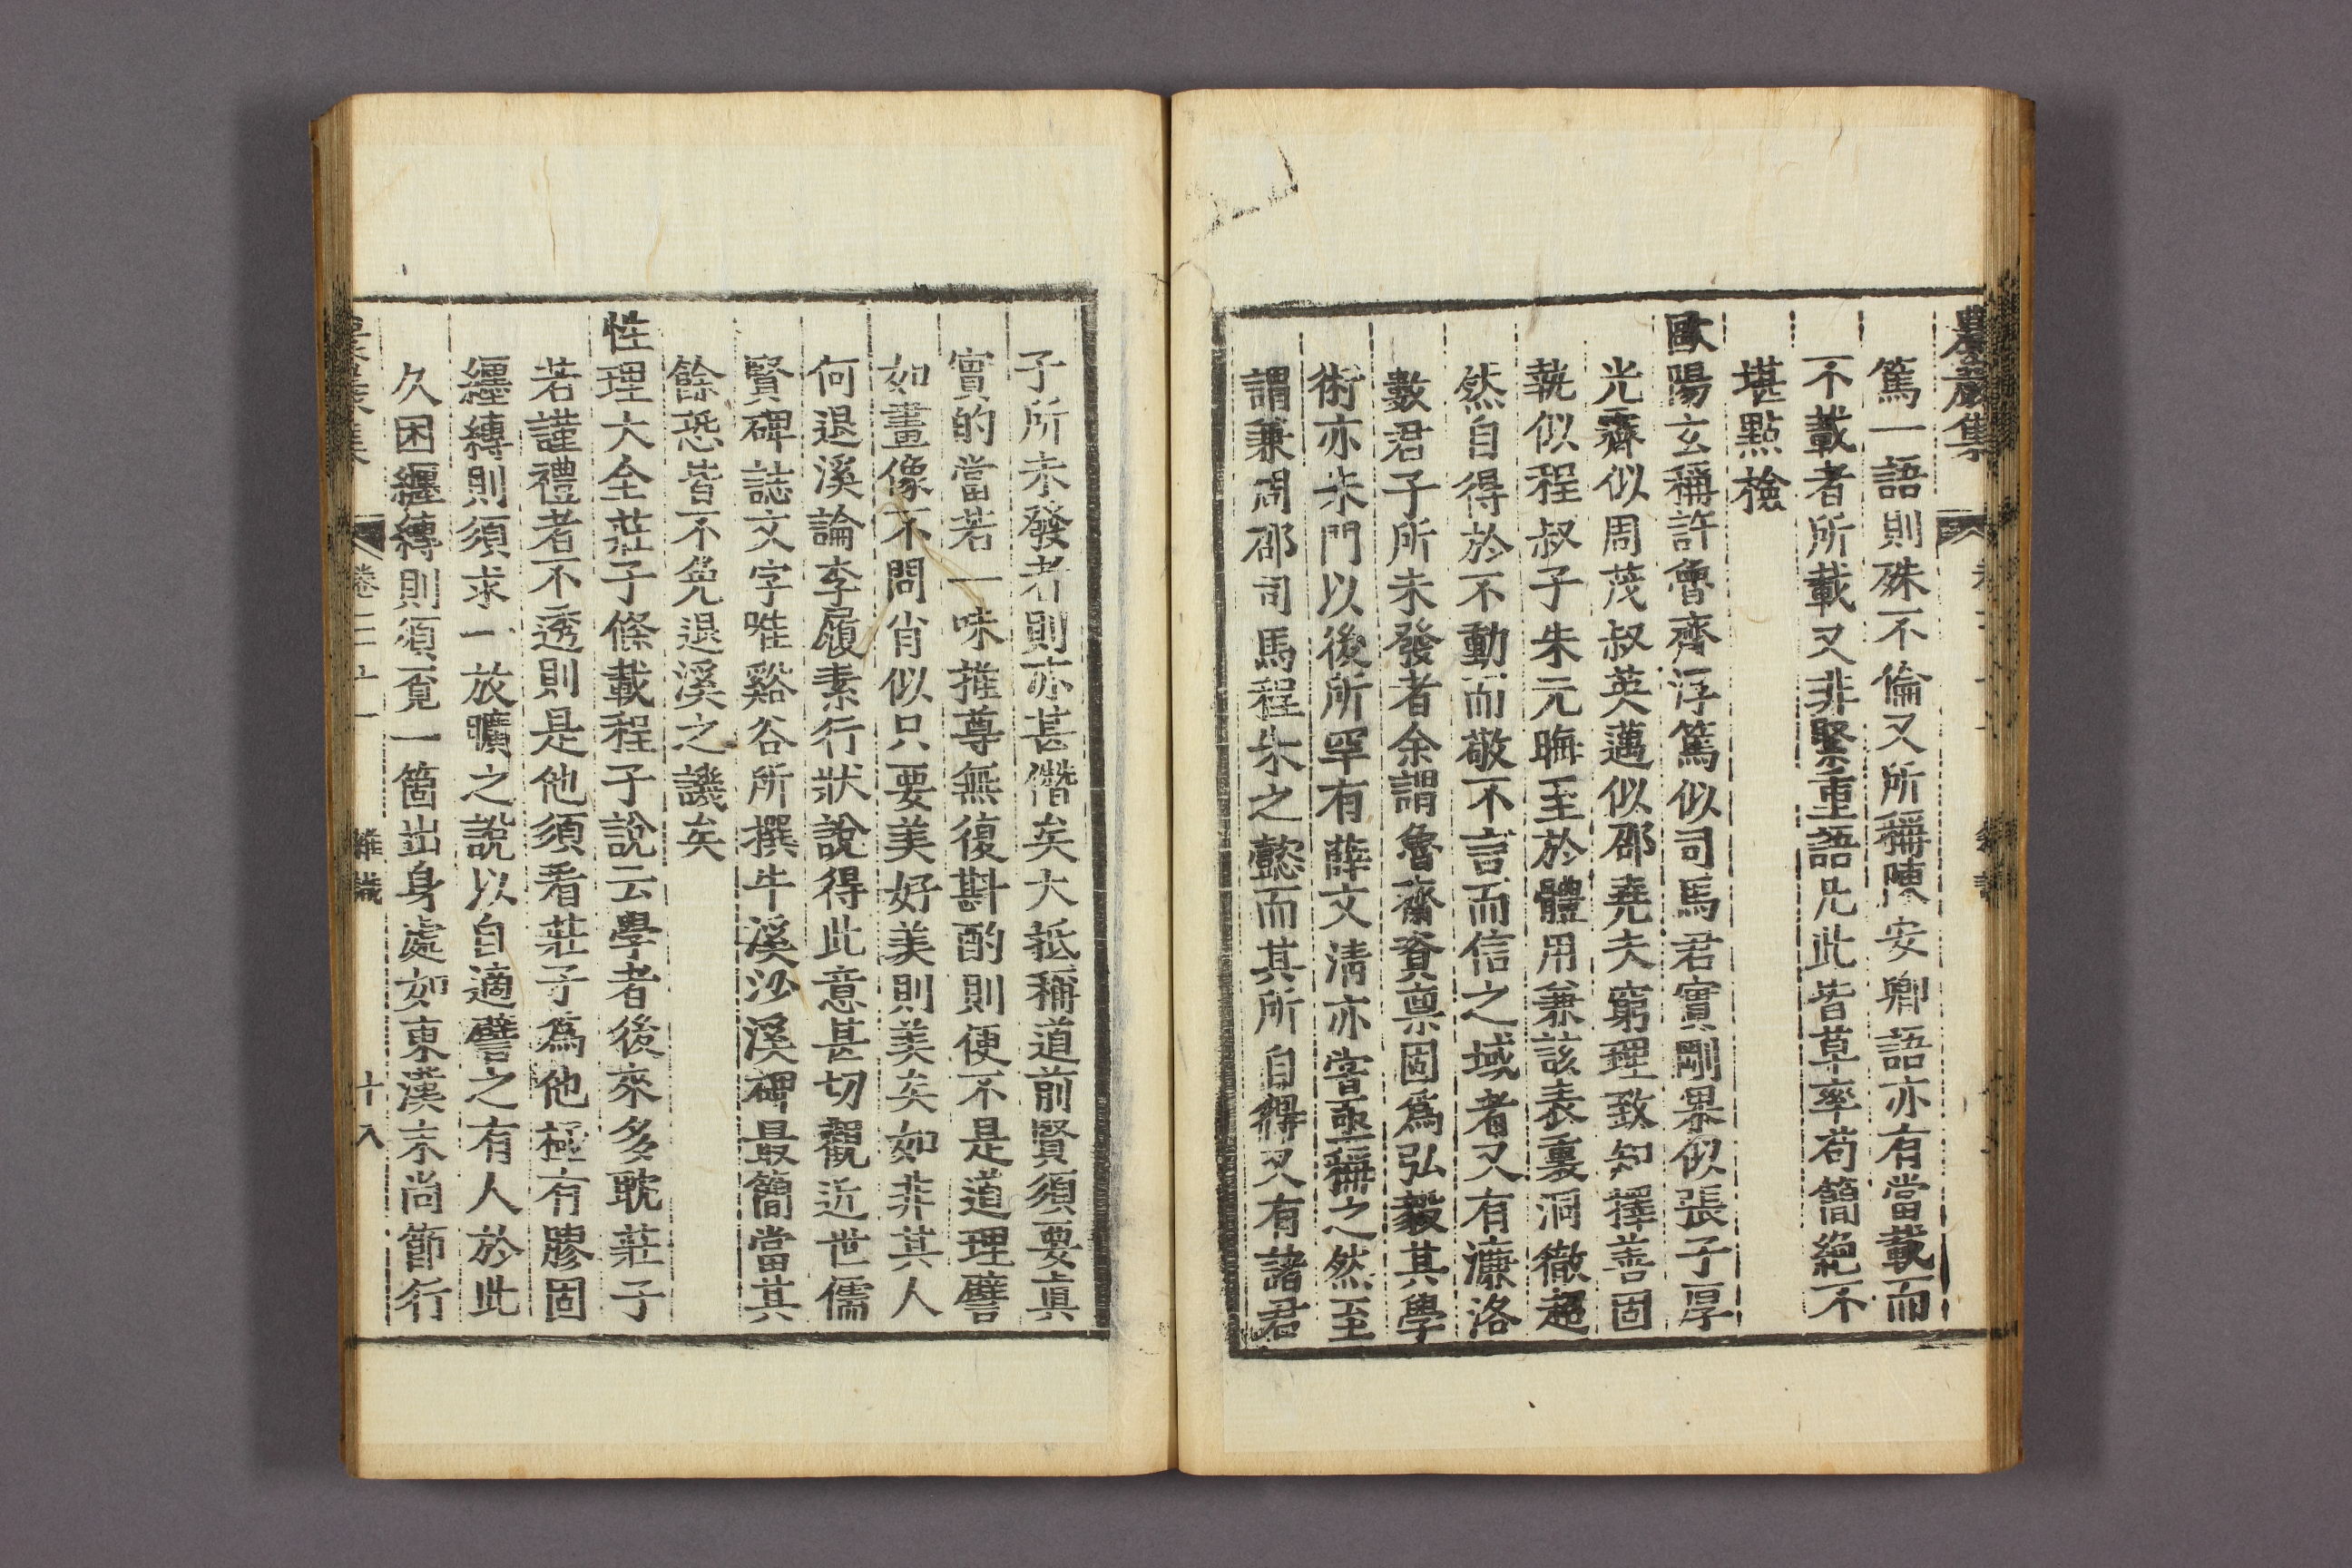 農巖集
篤一語則殊不倫又所稱陳安卿語亦有當載而
不載者所載又非緊重語凡此皆草率苟簡絶不
堪點檢
歐陽玄稱許魯齋淳篤似司馬君實剛果似張子厚
光霽似周茂叔英邁似邵堯夫窮理致知擇善固
執似程叔子朱元晦至於體用兼該表裏洞徹超
然自得於不動而敬不言而信之域者又有濂洛
數君子所未發者余謂魯齋資禀固爲弘毅其學
術亦朱門以後所罕有薛文淸亦嘗亟稱之然至
謂兼周邵司馬程朱之懿而其所自得又有諸君
子所未發者則亦甚僭矣大抵稱道前賢須要眞
實的當若一味推尊無復斟酌則便不是道理譬
如畫像不問肖似只要美好美則美矣如非其人
何退溪論李履素行狀說得此意甚切觀近世儒
賢碑誌文字唯谿谷所撰牛溪沙溪碑最簡當其
餘恐皆不免退溪之譏矣
性理大全莊子條載程子說云學者後來多耽莊子
若謹禮者不透則是他須看莊子爲他極有膠固
纒縛則須求一放曠之說以自適譬之有人於此
久困纒縛則須覓一箇出身處如東漢末尚節行
農巖集 卷三十一 雜識 十八